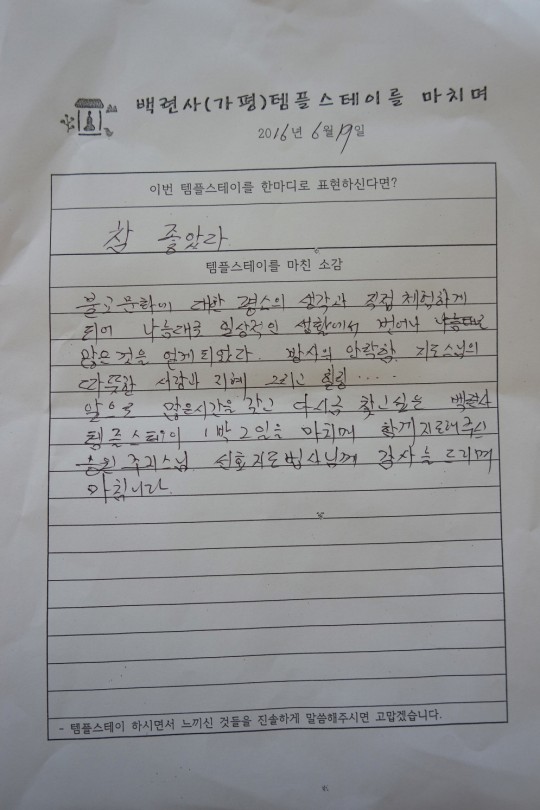 백련사(가평)템플스테이를 마치며
2016년 6월 19일
이번 템플스테이를 한마디로 표현하신다면?
참 좋았다
템플스테이를 마친 소감
불교문화에 대한 평소의 생각과 직접 체험하게
되어 나름대로 일상적인 생활에서 벗어나 나름대로
많은것을 얻게되었다. 산사의 안락함 지도스님의
따뜻한 사람과 지혜 그리고 힐링 .....
앞으로 많은시간을 갖고 다시금 찾고싶은 백련사
템플스테이 1박2일을 마치며 함께 지도해주신
승원 주지스님 선효지도법사님께 감사를 드리며
마칩니다.
- 템플스테이 하시면서 느끼신 것들을 진솔하게 말씀해주시면 고맙겠습니다.